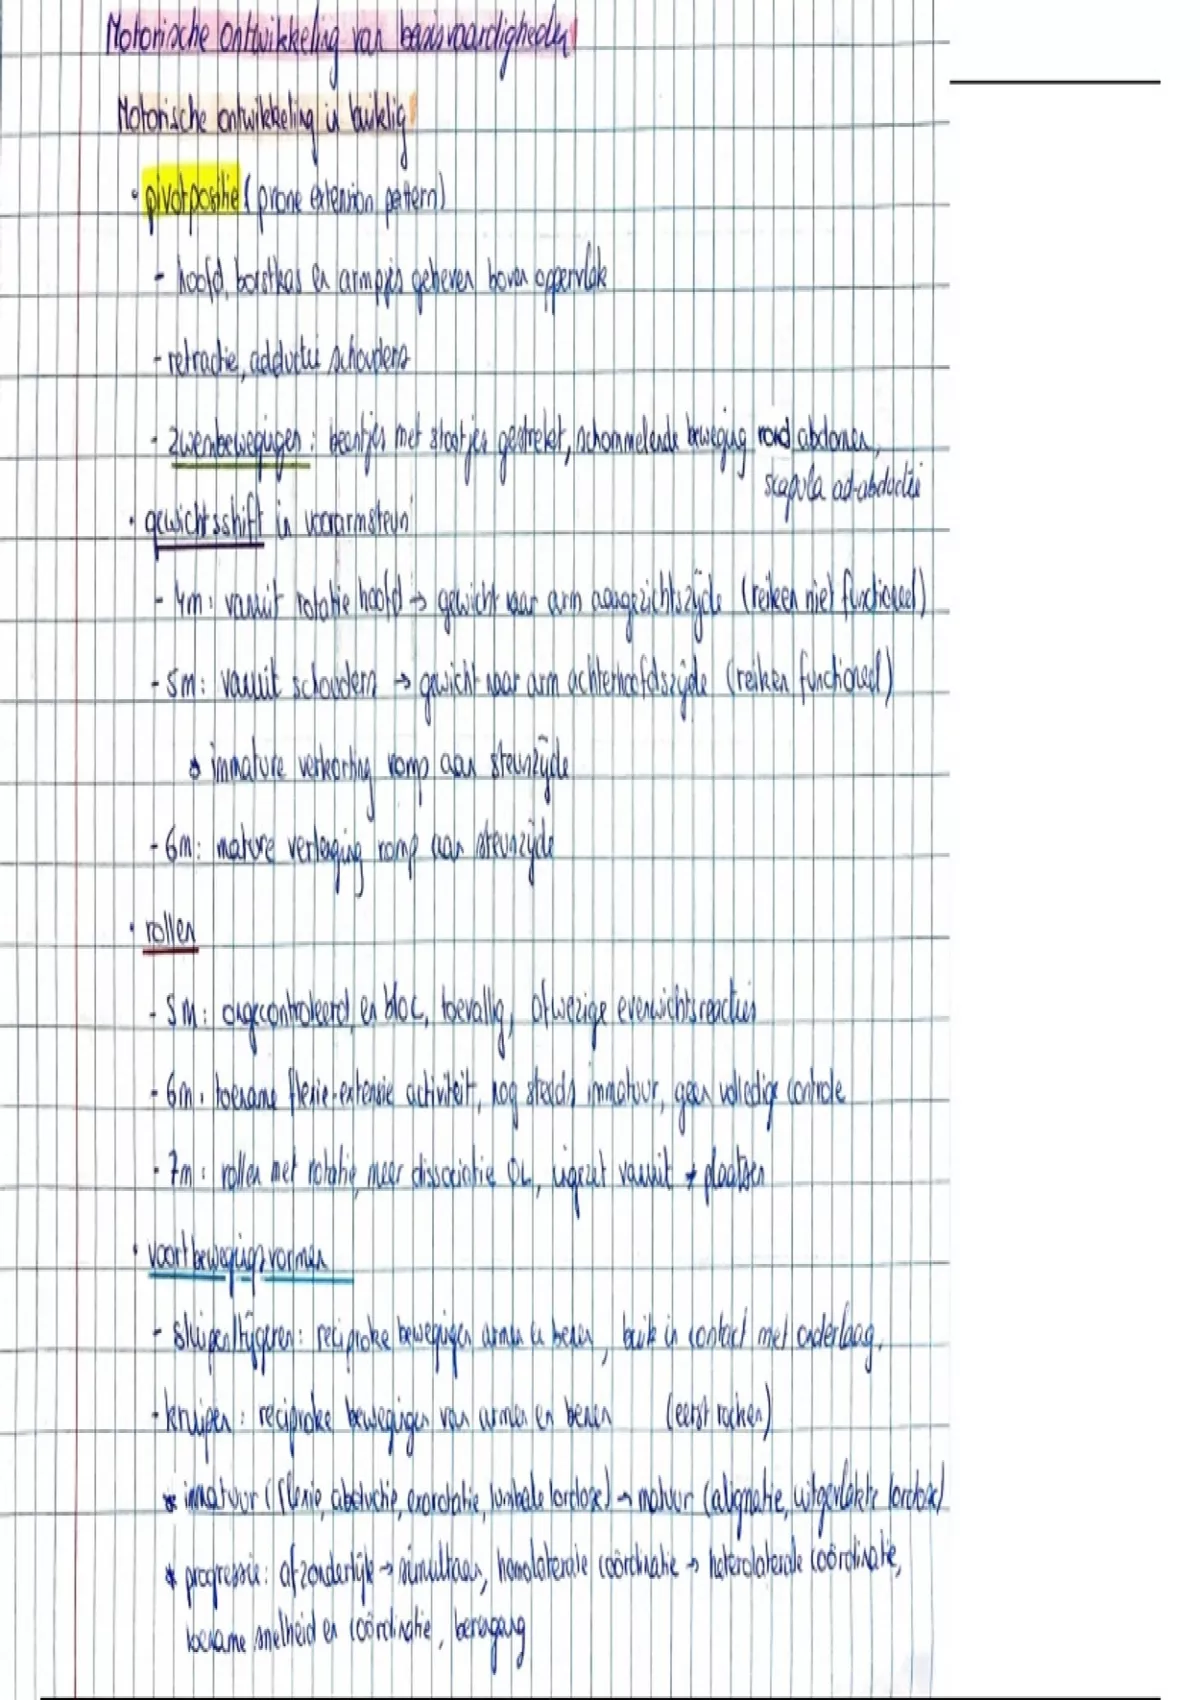 Motorische ontwikkeling van basisvaardigheden
Motorische ontwikkeling in buiklig
· pivotpositie (prone extension pattern)
- hoofd, borstkas en armpjes geheven boven oppervlak
- retractie, adductie schouders
- zwembewegingen: beentjes met stootjes gestrekt, schommelende beweging rond abdomen,
scapula ad-abductie
· gewichtsshift in voorarmsteun
- 4m: vanuit rotatie hoofd → gewicht naar arm aangezichtszijde (reiken niet functioneel)
- 5m: vanuit schouders → gewicht naar arm achterhoofdszijde (reiken functioneel)
* immature verkorting romp aan steunzijde
- 6m: mature verlenging romp aan steunzijde
· rollen
- 5m: ongecontroleerd, en bloc, toevallig, afwezige evenwichtsreacties
- 6m: toename flexie-extensie activiteit, nog steeds immatuur, geen volledige controle
- 7m: rollen met rotatie, meer dissociatie OL, ingezet vanuit ≠ plaatsen
· voortbewegingsvormen
- sluipen/tijgeren: reciproke bewegingen armen en benen, buik in contact met onderlaag.
- kruipen: reciproke bewegingen van armen en benen (eerst rocken)
* immatuur (flexie, abductie, exorotatie, lumbale lordose) → matuur (alignatie, uitgevlakte lordose)
* progressie: afzonderlijk → simultaan, homolaterale coördinatie → heterolaterale coördinatie,
toename snelheid en coördinatie,